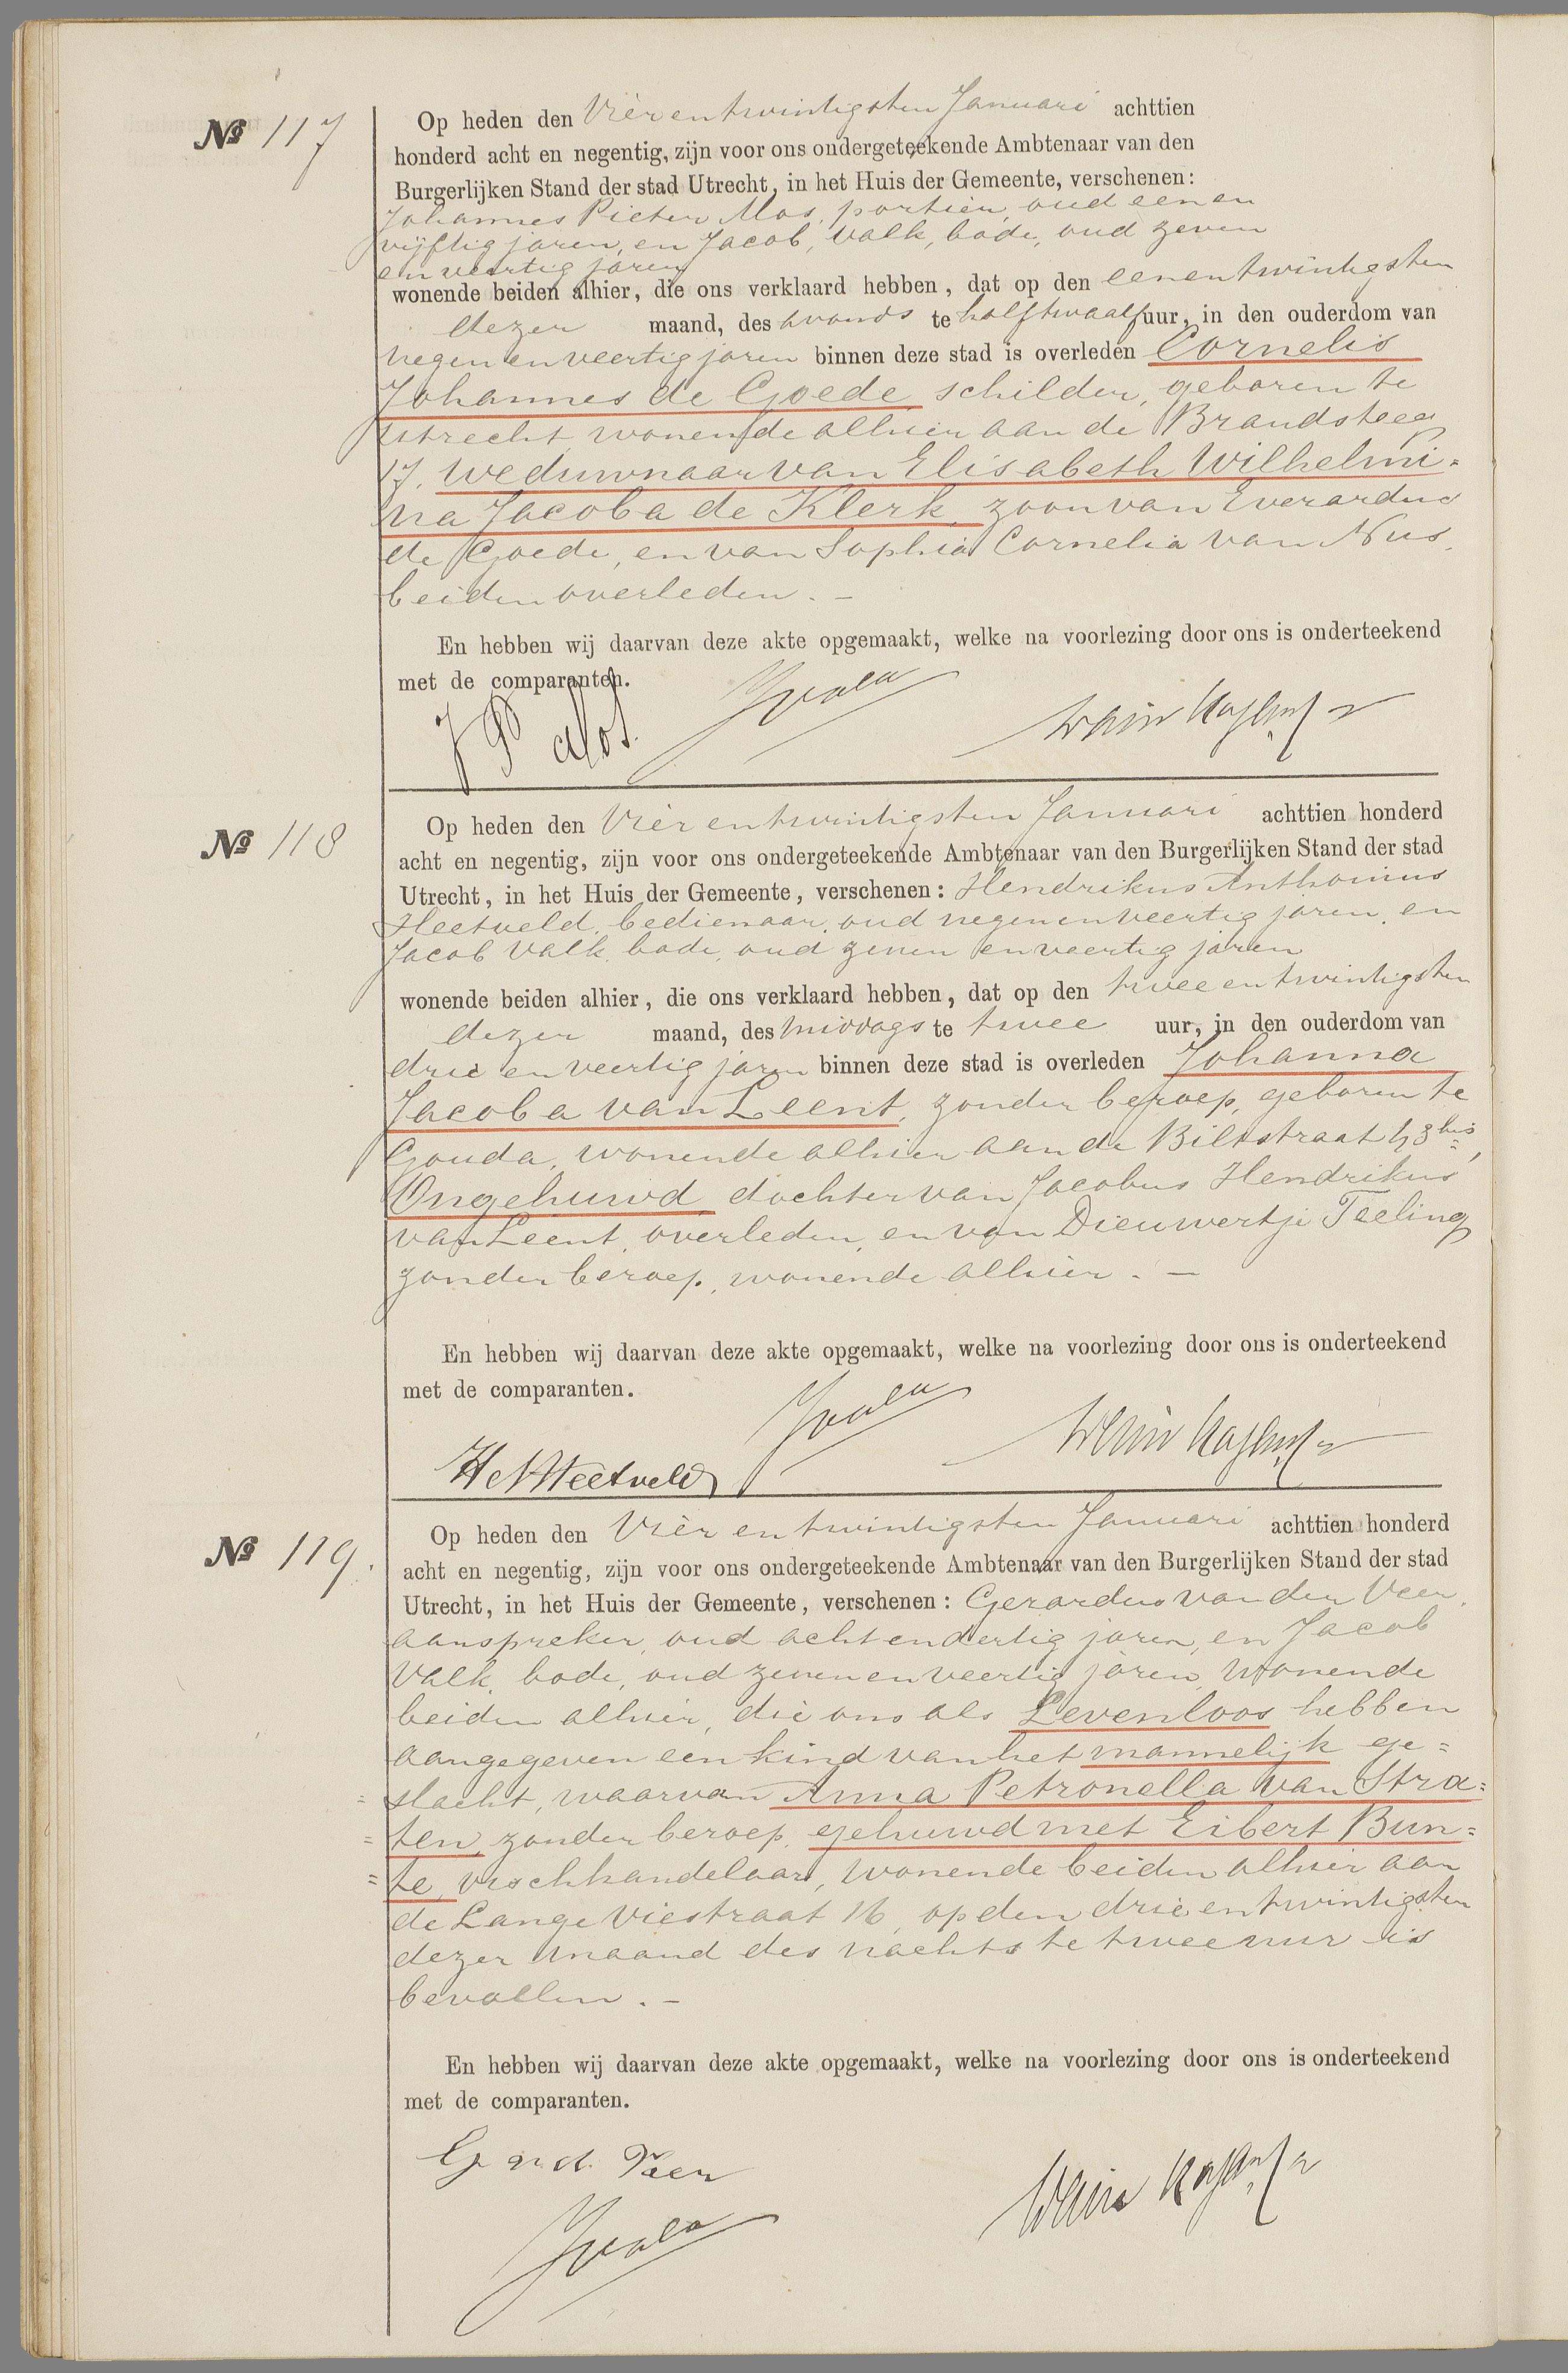 Nº 117
Op heden den Vier en twintigsten Januari achttien
honderd acht en negentig, zijn voor ons ondergeteekende Ambtenaar van den
Burgerlijken Stand der stad Utrecht, in het Huis der Gemeente, verschenen:
Johannes Pieter Mos, portier, oud een en
vijftig jaren, en Jacob Valk, bode, oud zeven
en veertig jaren
wonende beiden alhier, die ons verklaard hebben, dat op den een en twintigsten
dezer maand, des avonds te half twaalf uur, in den ouderdom van
negen en veertig jaren binnen deze stad is overleden Cornelis
Johannes de Goede, schilder, geboren te
Utrecht, wonende alhier aan de Brandsteeg
17, weduwnaar van Elisabeth Wilhelmi=
na Jacoba de Klerk, zoon van Everardus
de Goede, en van Sophia Cornelia van Nus,
beiden overleden. -
En hebben wij daarvan deze akte opgemaakt, welke na voorlezing door ons is onderteekend
met de comparanten.
J P Mos. JValk
Nº 118
Op heden den Vier en twintigsten Januari achttien honderd
acht en negentig, zijn voor ons ondergeteekende Ambtenaar van den Burgerlijken Stand der stad
Utrecht, in het Huis der Gemeente, verschenen: Hendrikus Anthonius
Heetveld, bedienaar, oud negen en veertig jaren, en
Jacob Valk, bode, oud zeven en veertig jaren
wonende beiden alhier, die ons verklaard hebben, dat op den twee en twintigsten
dezer maand, des middags te twee uur, in den ouderdom van
drie en veertig jaren binnen deze stad is overleden Johanna
Jacoba van Leent, zonder beroep, geboren te
Gouda, wonende alhier aan de Biltstraat
Ongehuwd, dochter van Jacobus Hendrikus
van Leent, overleden, en van Dieuwertje Teeling
zonder beroep, wonende alhier. -
En hebben wij daarvan deze akte opgemaakt, welke na voorlezing door ons is onderteekend
met de comparanten.
JValk
HA Heetveld
Nº 119.
Op heden den Vier en twintigsten Januari achttien honderd
acht en negentig, zijn voor ons ondergeteekende Ambtenaar van den Burgerlijken Stand der stad
Utrecht, in het Huis der Gemeente, verschenen: Gerardus van der Veer,
aanspreker, oud acht en dertig jaren, en Jacob
Valk, bode, oud zeven en veertig jaren, wonende
beiden alhier, die ons als Levenloos hebben
aangegeven een kind van het mannelijk ge=
slacht, waarvan Anna Petronella van Stra=
ten, zonder beroep, gehuwd met Eibert Bun=
te, vischhandelaar, wonende beiden alhier aan
de Lange Viestraat 16, op den drie en twintigsten
dezer maand des nachts te twee uur is
bevallen. -
En hebben wij daarvan deze akte opgemaakt, welke na voorlezing door ons is onderteekend
met de comparanten.
G v. d. Veer
JValk